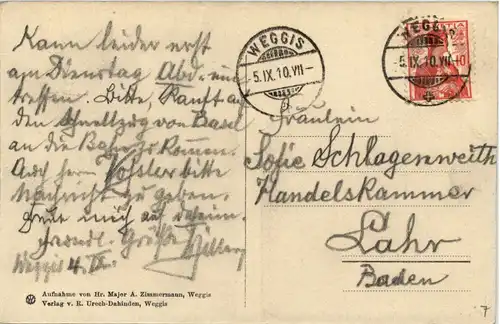 Kann leider erst
am Dienstag Abd. ein-
treffen. Bitte, an
den Schnellzug von Basel
an die Bahn zu kommen.
Auch Herrn bitte
Nachricht zu geben.
Freue mich auf daheim.
Freundl. Grüße
Weggis 4. IX.
WEGGIS
-5.IX.10.VII-
WEGGIS
-5.IX.10.VII-
Fräulein
Sofie Schlagenweith
Handelskammer
Lahr
Baden
Aufnahme von Hr. Major A. Zimmermann, Weggis
Verlag v. R. Urech-Dahinden, Weggis
7